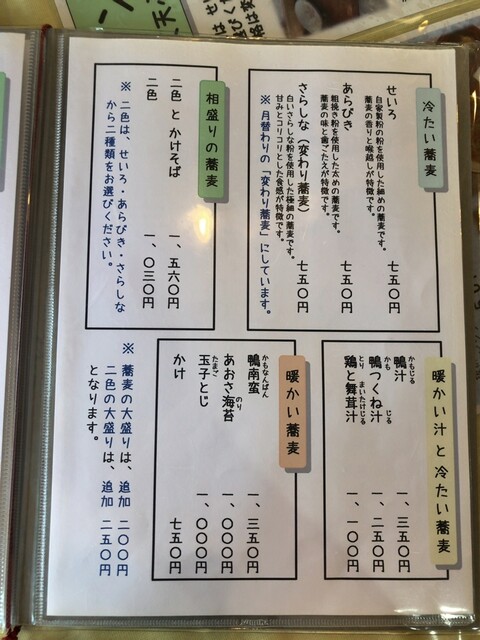 冷たい蕎麦
せいろ 七五〇円
自家製粉の粉を使用した細めの蕎麦です。
蕎麦の香りと喉越しが特徴です。
あらびき 七五〇円
粗挽き粉を使用した太めの蕎麦です。
蕎麦の味と歯ごたえが特徴です。
さらしな（変わり蕎麦） 七五〇円
白いさらしな粉を使用した極細の蕎麦です。
甘みとコリコリとした食感が特徴です。
※月替わりの「変わり蕎麦」にしています。
相盛りの蕎麦
二色 と かけそば 一、五六〇円
二色 一、〇三〇円
※ 二色は、せいろ・あらびき・さらしな
から二種類をお選びください。
暖かい汁 と 冷たい蕎麦
鴨汁 一、三五〇円
かもじる
鴨つくね汁 一、二五〇円
かも じる
鶏と舞茸汁 一、一〇〇円
とり まいたけじる
暖かい蕎麦
鴨南蛮 一、三五〇円
かもなんばん
あおさ海苔 一、〇〇〇円
のり
玉子とじ 一、〇〇〇円
たまご
かけ 七五〇円
※ 蕎麦の大盛りは、追加 二〇〇円
二色の大盛りは、追加 二五〇円
となります。